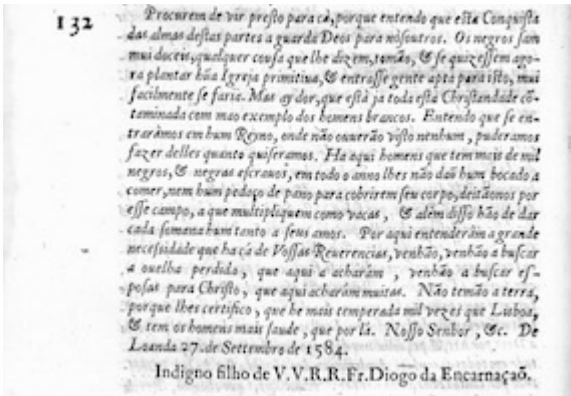 132
Procurem de vir presto para cà, porque entendo que esta Conquista
das almas destas partes a guarda Deos para nósoutros. Os negros sam
mui doceis, qualquer cousa que lhe dizem, tomão, & se quizessem ago-
ra plantar hũa Igreja primitiua, & entrasse gente apta para isto, mui
facilmente se faria. Mas ay dor, que està ja toda esta Christandade cõ-
taminada com mao exemplo dos homens brancos. Entendo que se en-
traràmos em hum Reyno, onde não ouuerão visto nenhum, puderamos
fazer delles quanto quiseramos. Ha aqui homens que tem mais de mil
negros, & negras escrauos, em todo o anno lhes não daõ hum bocado a
comer, nem hum pedaço de pano para cobrirem seu corpo, deitãonos por
esse campo, a que multipliquem como vacas, & alèm disso hão de dar
cada somana hum tanto a seus amos. Por aqui entenderàm a grande
necessidade que ha cà de Vossas Reuerencias, venhão, venhão a buscar
a ouelha perdida, que aqui a acharàm, venhão a buscar es-
posas para Christo, que aqui acharàm muitas. Não temão a terra,
porque lhes certifico, que he mais temperada mil vezes que Lisboa,
& tem os homens mais saude, que por là. Nosso Senhor, &c. De
Loanda 27. de Settembro de 1584.
Indigno filho de V.V.R.R. Fr. Diogo da Encarnaçaõ.